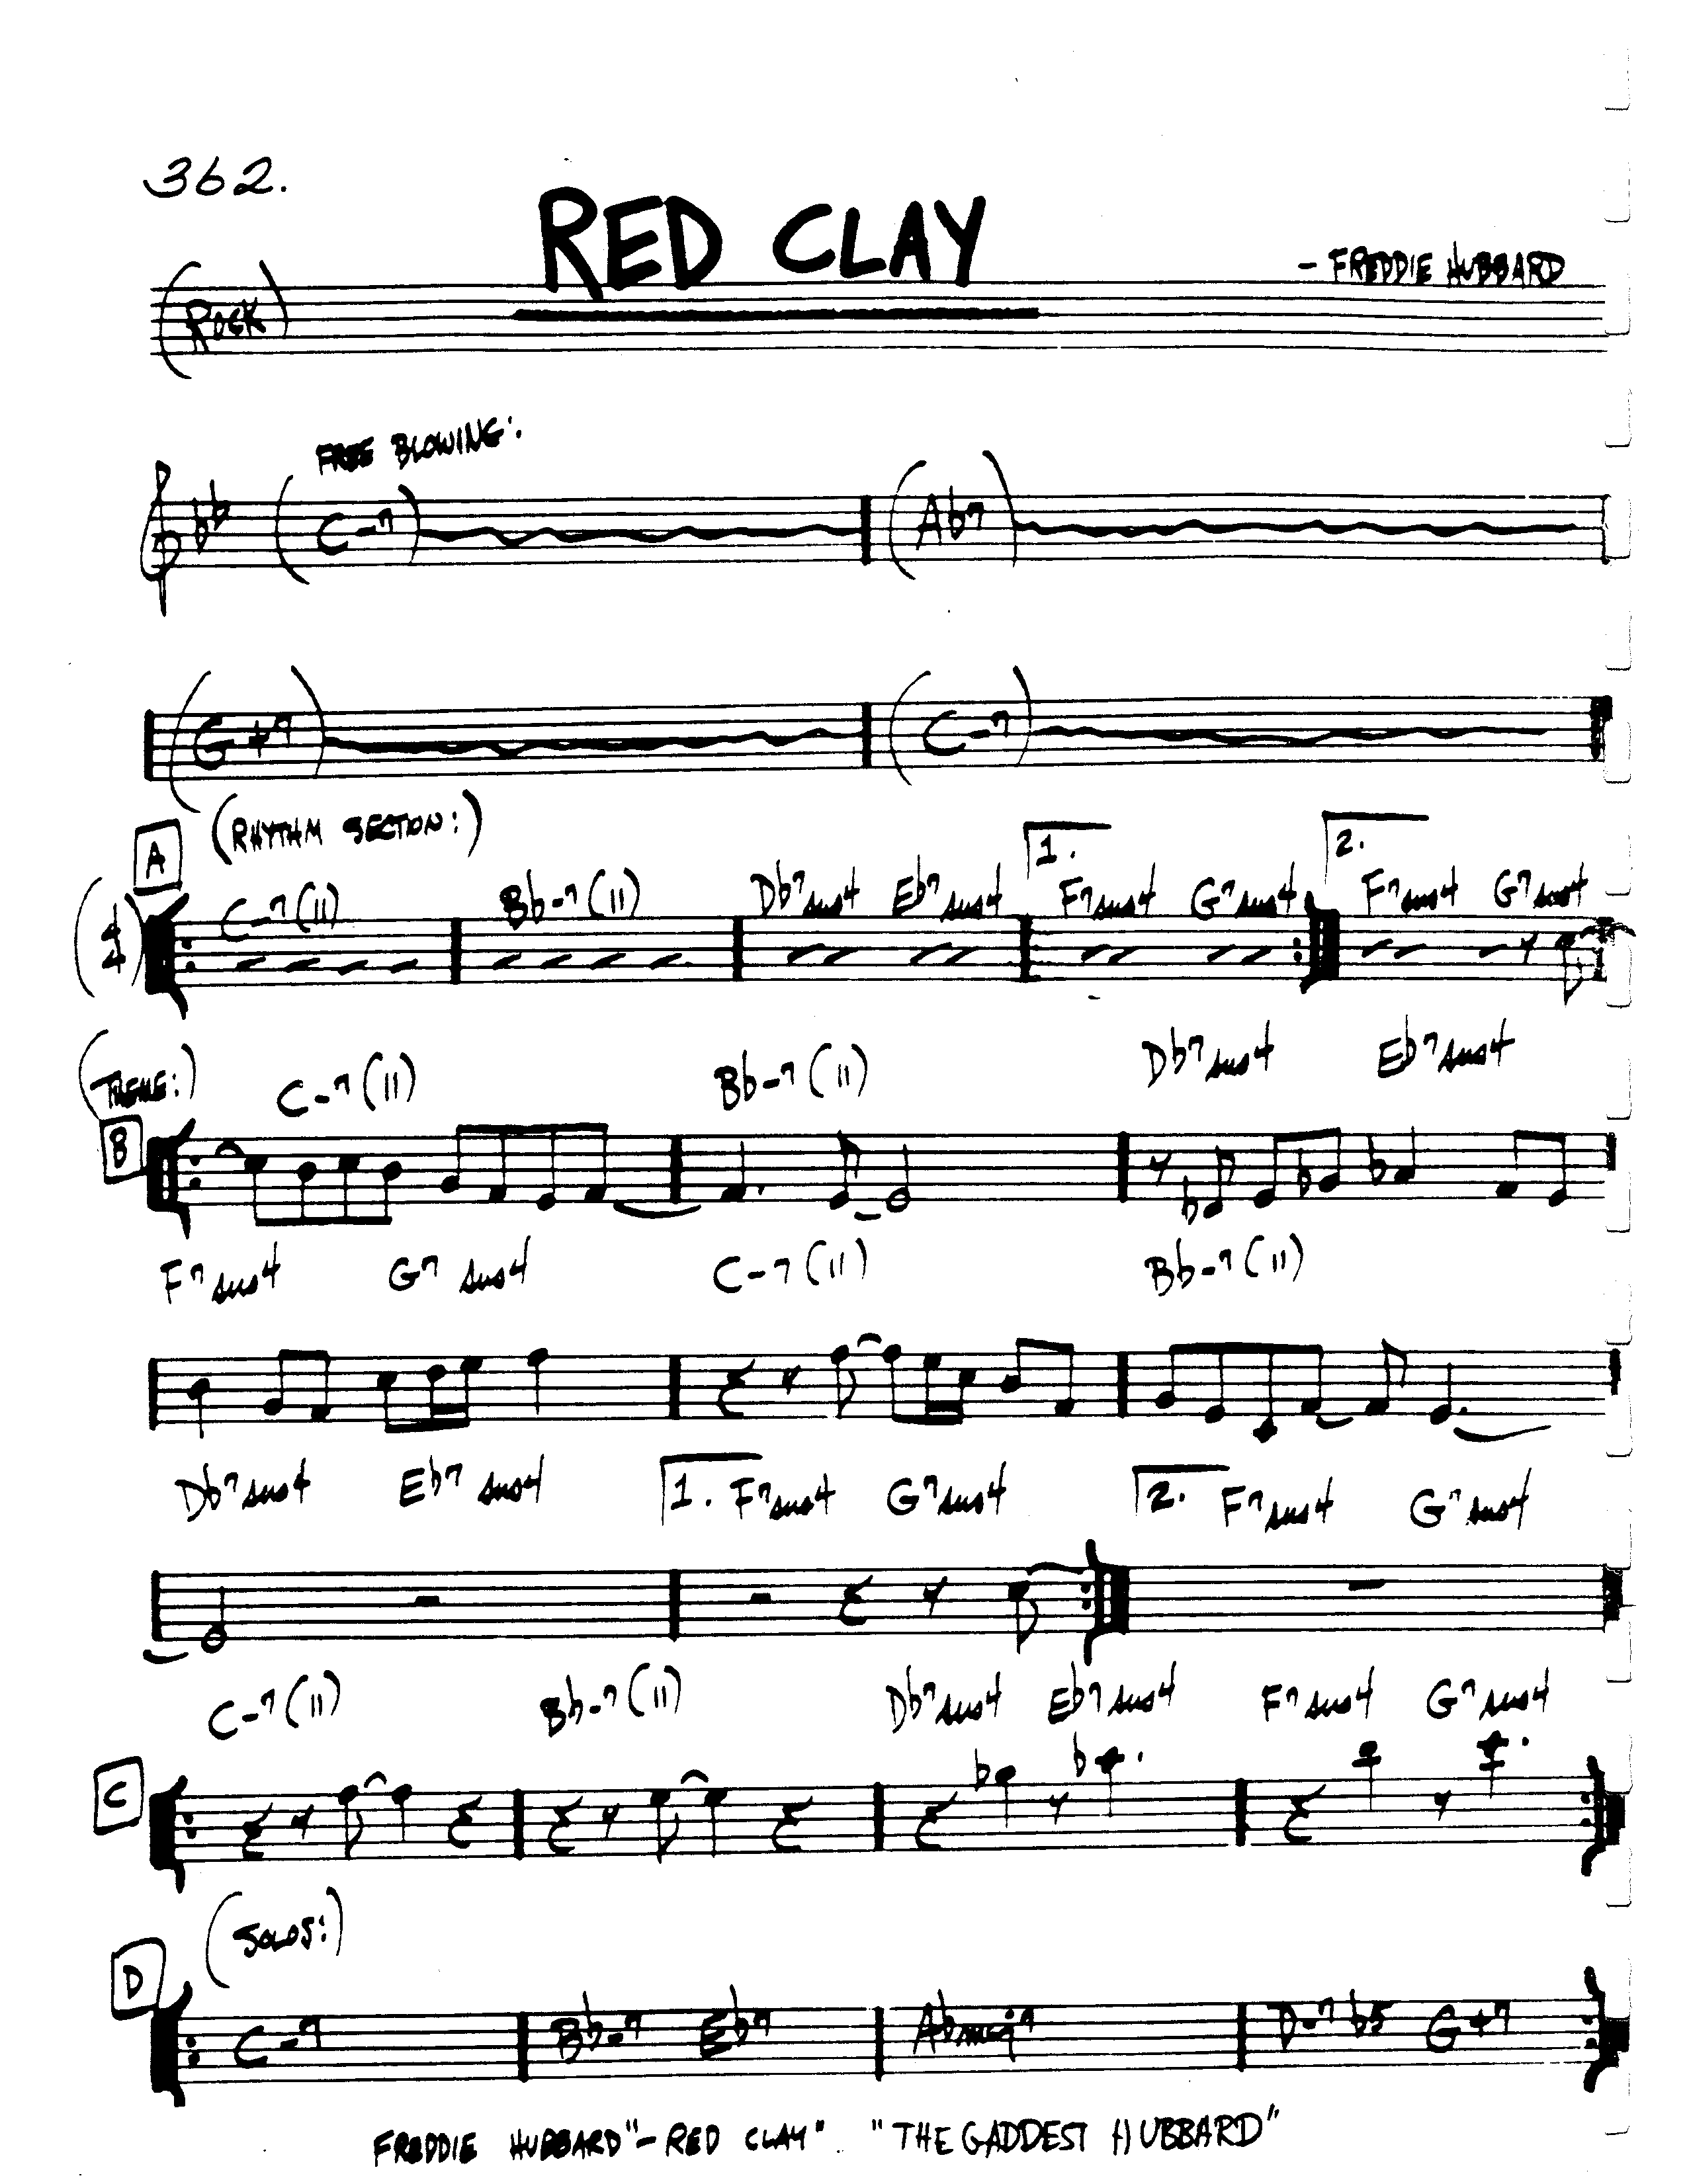 362.
RED CLAY
- FREDDIE HUBBARD
(ROCK)
FREE BLOWING:
(C-7) (Ab7)
(G+7) (C-7)
A (RHYTHM SECTION:) 1. 2.
C-7(11) Bb-7(11) Db7sus4 Eb7sus4 F7sus4 G7sus4 F7sus4 G7sus4
(4/4)
(THEME:) C-7(11) Bb-7(11) Db7sus4 Eb7sus4
B
F7sus4 G7sus4 C-7(11) Bb-7(11)
Db7sus4 Eb7sus4 1. F7sus4 G7sus4 2. F7sus4 G7sus4
C-7(11) Bb-7(11) Db7sus4 Eb7sus4 F7sus4 G7sus4
C
(SOLOS:)
D
C-7 Bb-7 Eb7 Abmaj7 D-7b5 G+7
FREDDIE HUBBARD "- RED CLAY" "THE GADDEST HUBBARD"